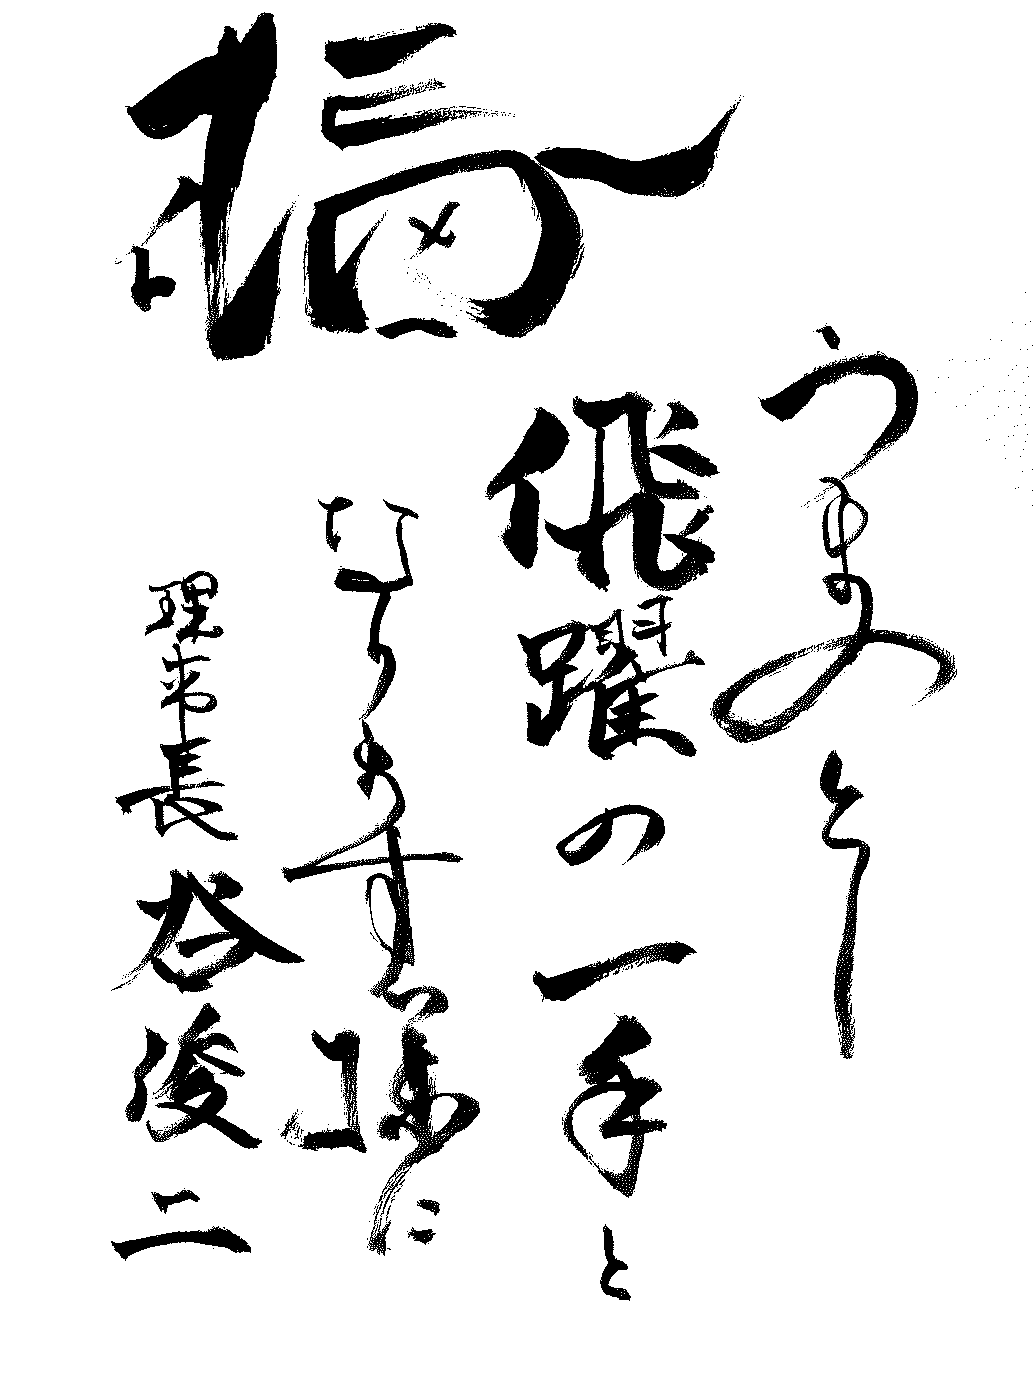 福
うまのとし
飛躍の一年と
なります様に
理事長 谷俊二